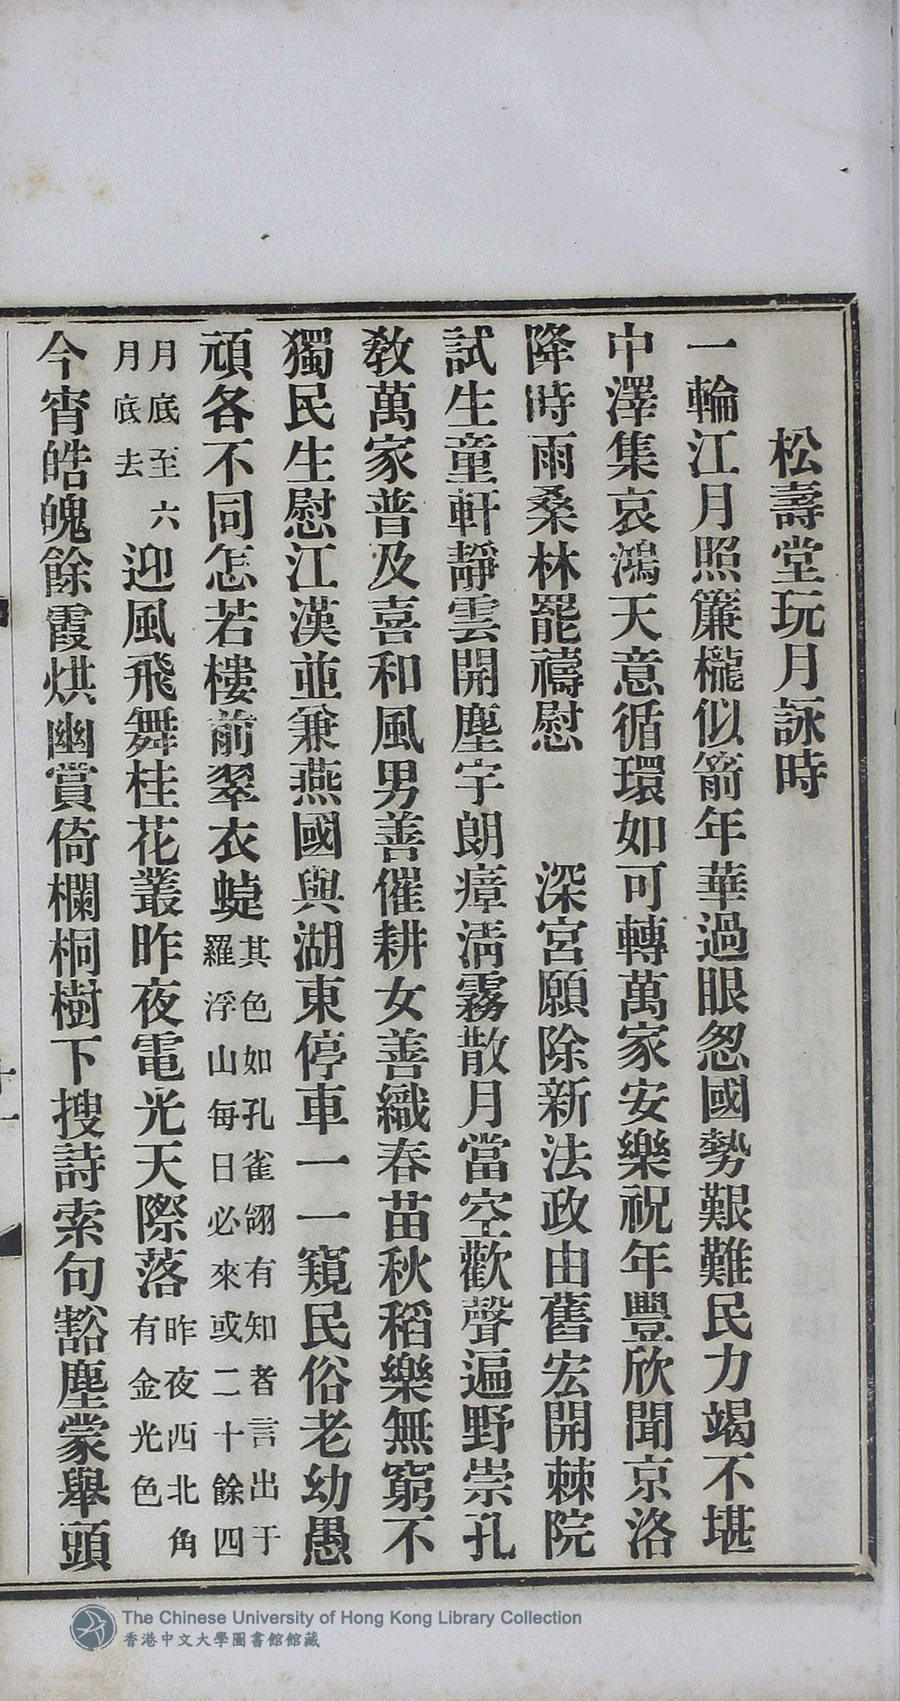 松壽堂玩月詠時
一輪江月照簾櫳似箭年華過眼怱國勢艱難民力竭不堪
中澤集哀鴻天意循環如可轉萬家安樂祝年豐欣聞京洛
降時雨桑林罷禱慰　深宮願除新法政由舊宏開棘院
試生童軒靜雲開塵宇朗瘴淸霧散月當空歡聲遍野崇孔
敎萬家普及喜和風男善催耕女善織春苗秋稻樂無窮不
獨民生慰江漢並兼燕國與湖東停車一一窺民俗老幼愚
頑各不同怎若樓前翠衣蜨
其色如孔雀翎有知者言出于
羅浮山每日必來或二十餘四
月底至六
月底去
迎風飛舞桂花叢昨夜電光天際落
昨夜西北角
有金光色
今宵皓魄餘霞烘幽賞倚欄桐樹下搜詩索句豁塵蒙舉頭
十一
The Chinese University of Hong Kong Library Collection
香港中文大學圖書館館藏